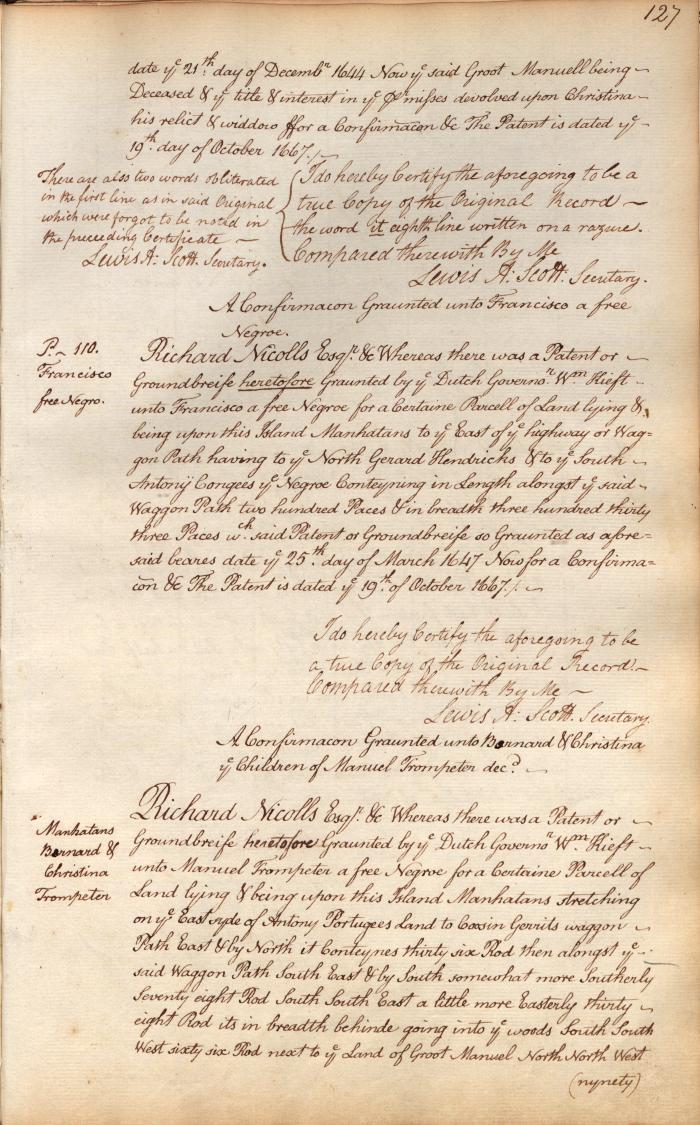 127
date yᵉ 21ᵗʰ day of Decembʳ 1644 Now yᵉ said Groot Manuell being
Deceased & yᵉ title & interest in yᵉ pʳmisses devolved upon Christina
his relict & widdow ffor a Confirmacon &c The Patent is dated yᵉ
19ᵗʰ day of October 1667./.
There are also two words obliterated
in the first line as in said Original
which were forgot to be noted in
the preceeding Certificate
Lewis A: Scott. Secretary.
I do hereby Certify the aforegoing to be a
true Copy of the Original Record
the word it eighth line written on a razure.
Compared therewith By Me
Lewis A: Scott. Secretary.
A Confirmacon Graunted unto Francisco a free
Negroe.
P. 110.
Francisco
free Negro.
Richard Nicolls Esqʳ. &c Whereas there was a Patent or
Groundbreife heretofore Graunted by yᵉ Dutch Governoʳ Wᵐ Kieft
unto Francisco a free Negroe for a Certaine Parcell of Land lying &
being upon this Island Manhatans to yᵉ East of yᵉ highway or Wag=
gon Path having to yᵉ North Gerard Hendricks & to yᵉ South
Antony Congees yᵉ Negroe Conteyning in Length alongst yᵉ said
Waggon Path two hundred Paces & in breadth three hundred thirty
three Paces wᶜʰ said Patent or Groundbreife so Graunted as afore=
said beares date yᵉ 25ᵗʰ day of March 1647 Now for a Confirma=
con &c The Patent is dated yᵉ 19ᵗʰ of October 1667./.
I do hereby Certify the aforegoing to be
a true Copy of the Original Record
Compared therewith By Me
Lewis A: Scott. Secretary.
A Confirmacon Graunted unto Bernard & Christina
yᵉ Children of Manuel Trompeter decᵈ.
Manhatans
Bernard &
Christina
Trompeter
Richard Nicolls Esqʳ. &c Whereas there was a Patent or
Groundbreife heretofore Graunted by yᵉ Dutch Governoʳ Wᵐ Kieft
unto Manuel Trompeter a free Negroe for a Certaine Parcell of
Land lying & being upon this Island Manhatans stretching
on yᵉ East syde of Antony Portugees Land to Coosin Gerrits waggon
Path East & by North it Conteynes thirty six Rod then alongst yᵉ
said Waggon Path South East & by South somewhat more Southerly
Seventy eight Rod South South East a little more Easterly thirty
eight Rod its in breadth behinde going into yᵉ woods South South
West sixty six Rod next to yᵉ Land of Groot Manuel North North West
(nynety)